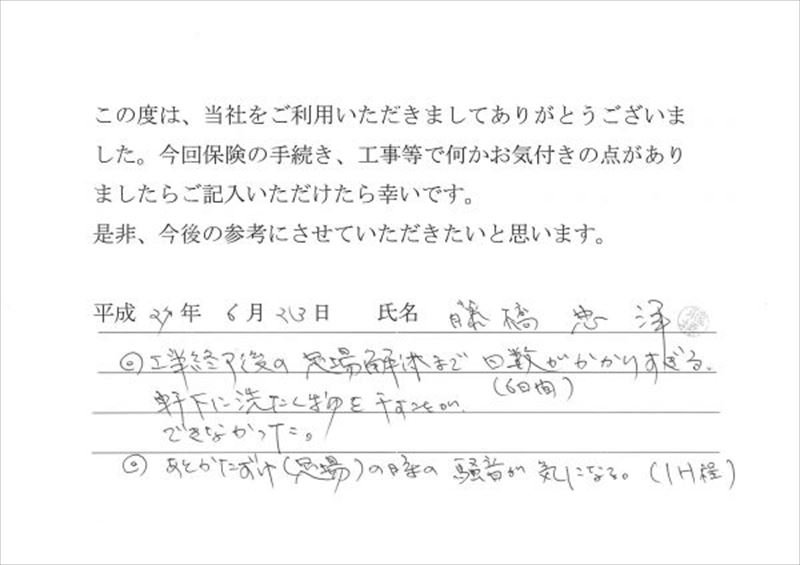 この度は、当社をご利用いただきましてありがとうございま
した。今回保険の手続き、工事等で何かお気付きの点があり
ましたらご記入いただけたら幸いです。
是非、今後の参考にさせていただきたいと思います。
平成 27年 6月 23日 氏名 藤橋 忠
◎工事終了後の足場解体まで日数がかかりすぎる。
(6日間)
軒下に洗たく物を干すことが
できなかった。
◎ あとかたずけ(足場)の時の騒音が気になる。(1H程)